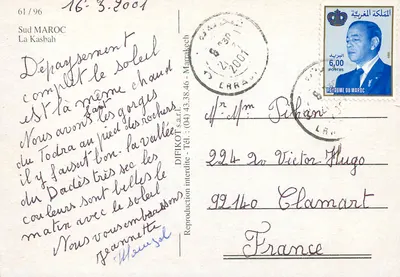 61 / 96
Sud MAROC
La Kasbah
16-3-2001
Dépaysement
complet le soleil
est là même chaud
Nous avons fait les gorges
du Todra au pied des rochers
il y faisait bon. la vallée
du Dadès très sec les
couleurs sont belles le
matin avec le soleil
Nous vous embrassons
Jeannette
DIFIKOT s.a.r.l.
Reproduction interdite - Tél. : (04) 43.38.46 - Marrakech
2001
المملكة المغربية
6,00
ROYAUME DU MAROC
Mr Mme Pihan
224 Av Victor Hugo
92140 Clamart
France